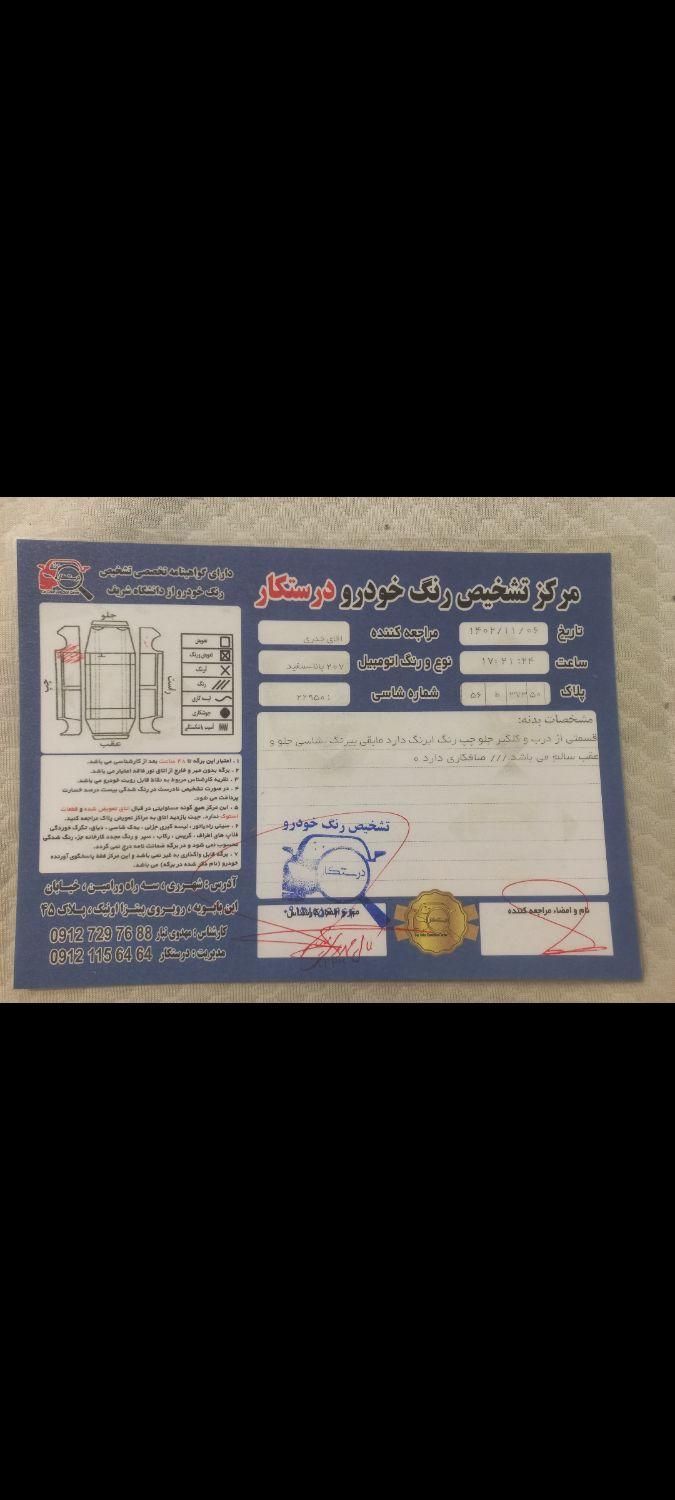 مرکز تشخیص رنگ خودرو درستکار
تاریخ ۱۴۰۲/۱۱/۰۶ مراجعه کننده اقای حدری
ساعت ۱۷:۲۱:۲۴ نوع و رنگ اتومبیل ۲۰۷ پانا-سفید
پلاک شماره شاسی
مشخصات بدنه:
قسمتی از درب و گلگیر جلو چپ رنگ ابرنگ دارد مابقی بیرنگ شاسی جلو و
عقب سالم می باشد /// صافکاری دارد
تشخیص رنگ خودرو
درستکار
نام و امضاء مراجعه کننده
دارای گواهینامه تخصصی تشخیص
رنگ خودرو از دانشگاه شریف
جلو
چپ
راست
عقب
تعویض
تعویض و رنگ
آبرنگ
رنگ
لیسه گیری
جوشکاری
آسیب یا شکستگی
۱. اعتبار این برگه تا ۴۸ ساعت بعد از کارشناسی می باشد.
۲. برگه بدون مهر و خارج از اتاق نور فاقد اعتبار می باشد.
۳. نظریه کارشناس مربوط به نقاط قابل رویت خودرو می باشد.
۴. در صورت تشخیص نادرست در رنگ شدگی بیست درصد خسارت
پرداخت می شود.
۵. این مرکز هیچ گونه مسئولیتی در قبال اتاق تعویض شده و قطعات
استوک ندارد. جهت بازدید اتاق به مراکز تعویض پلاک مراجعه کنید.
۶. سینی رادیاتور، لیسه گیری جزئی، یدک شاسی، دیاق، تگرگ خوردگی
قاب های اطراف، گریس، رکاب، سپر و رنگ مجدد کارخانه جزء رنگ شدگی
محسوب نمی شود و در برگه ضمانت نامه درج نمی گردد.
۷. برگه قابل واگذاری به غیر نمی باشد و این مرکز فقط پاسخگوی آورنده
خودرو (نام ذکر شده در برگه) می باشد.
آدرس: شهرری، سه راه ورامین، خیابان
ابن بابویه، روبروی پیتزا اونیک، پلاک ۴۵
کارشناس: مهدوی تبار 0912 729 76 88
مدیریت: درستکار 0912 115 64 64